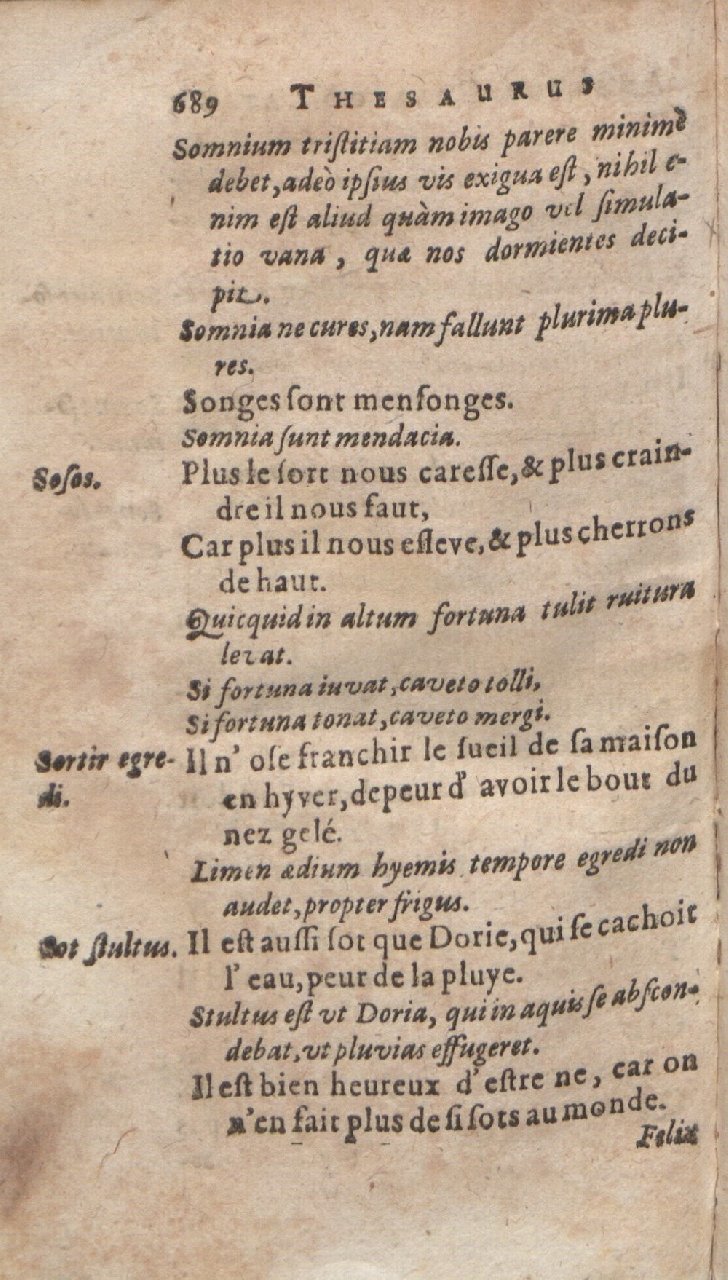 689 THESAURUS
Somnium triſtitiam nobis parere minimè
debet, adeò ipſius vis exigua eſt, nihil e-
nim eſt aliud quàm imago vel ſimula-
tio vana, quæ nos dormientes deci-
pit.
Somnia ne cures, nam fallunt plurima plu-
res.
Songes ſont menſonges.
Somnia ſunt mendacia.
Soſos. Plus le ſort nous careſſe, & plus crain-
dre il nous faut,
Car plus il nous eſleve, & plus cherrons
de haut.
Quicquid in altum fortuna tulit ruitura
levat.
Si fortuna iuvat, caveto tolli,
Si fortuna tonat, caveto mergi.
Sortir egre- Il n' oſe franchir le ſueil de ſa maiſon
di. en hyver, de peur d' avoir le bout du
nez gelé.
Limen ædium hyemis tempore egredi non
audet, propter frigus.
Sot ſtultus. Il eſt auſſi ſot que Dorie, qui ſe cachoit
l' eau, peur de la pluye.
Stultus eſt vt Doria, qui in aquis ſe abſcon-
debat, vt pluvias effugeret.
Il eſt bien heureux d' eſtre ne, car on
n'en fait plus de ſi ſots au monde.
Felix